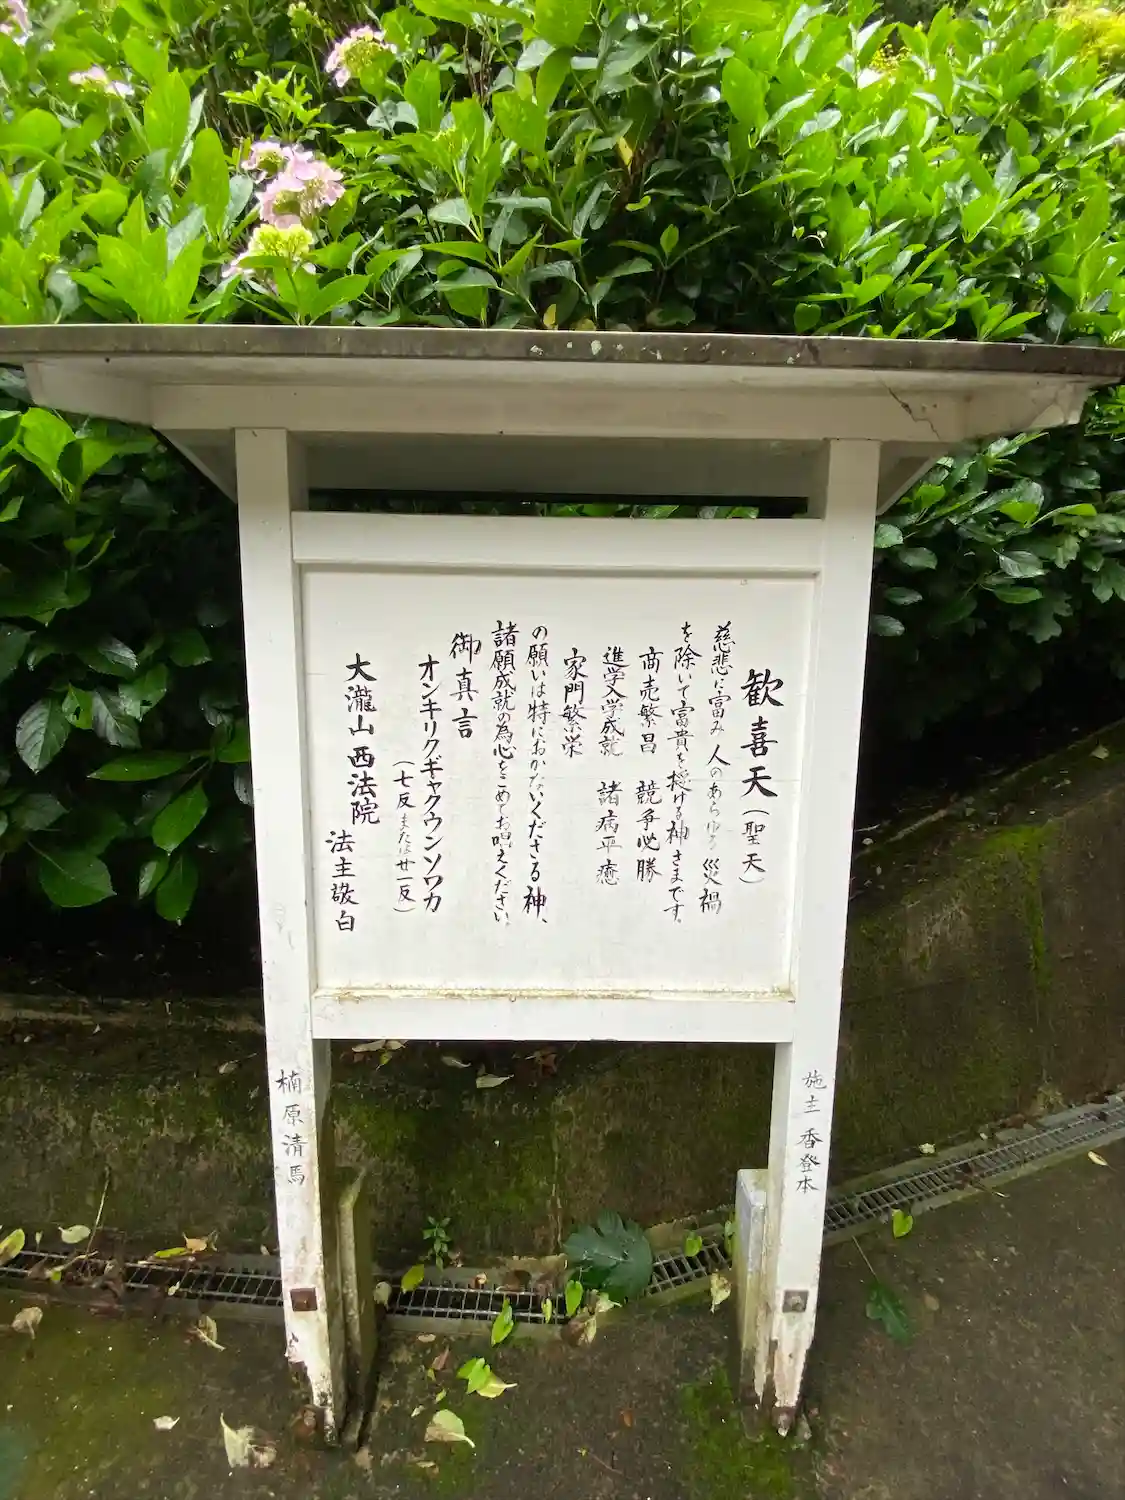 歓喜天(聖天)
慈悲に富み 人のあらゆる 災禍
を除いて富貴を授ける神さまです。
商売繁昌 競争必勝
進学入学成就 諸病平癒
家門繁栄
の願いは特におかないくださる神、
諸願成就の為心をこめてお唱えください。
御真言
オンキリクギャクウンソワカ
(七反または廿一反)
大瀧山西法院
法主敬白
施主 香登本
楠原清馬